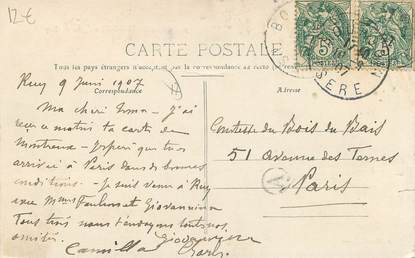 12-€
CARTE POSTALE
Tous les pays étrangers n'acceptent pas la correspondance au recto
Correspondance
Adresse
Ruy 9 Juin 1907
Ma cheri Irma - J'ai
reçu ce matin ta carte de
Montreux - J'espère que tu es
arrivée à Paris dans de bonnes
conditions - Je suis venu à Ruy
avec Giovannina
Tous trois nous t'envoyons toutes nos
amitiés.
Camilla
Comtesse du Bois du Bais
51 Avenue des Ternes
Paris
5
5
ISERE